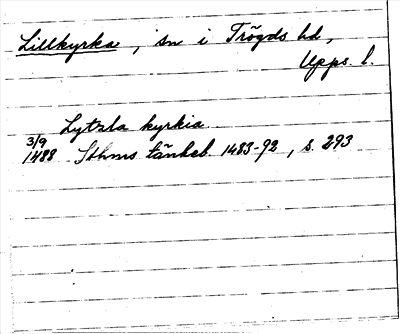 Lillkyrka, sn i Trögds hd,
Upps. l.
Lytzla kyrkia.
3/9
1488 Sthms tänkeb. 1483-92, s. 293